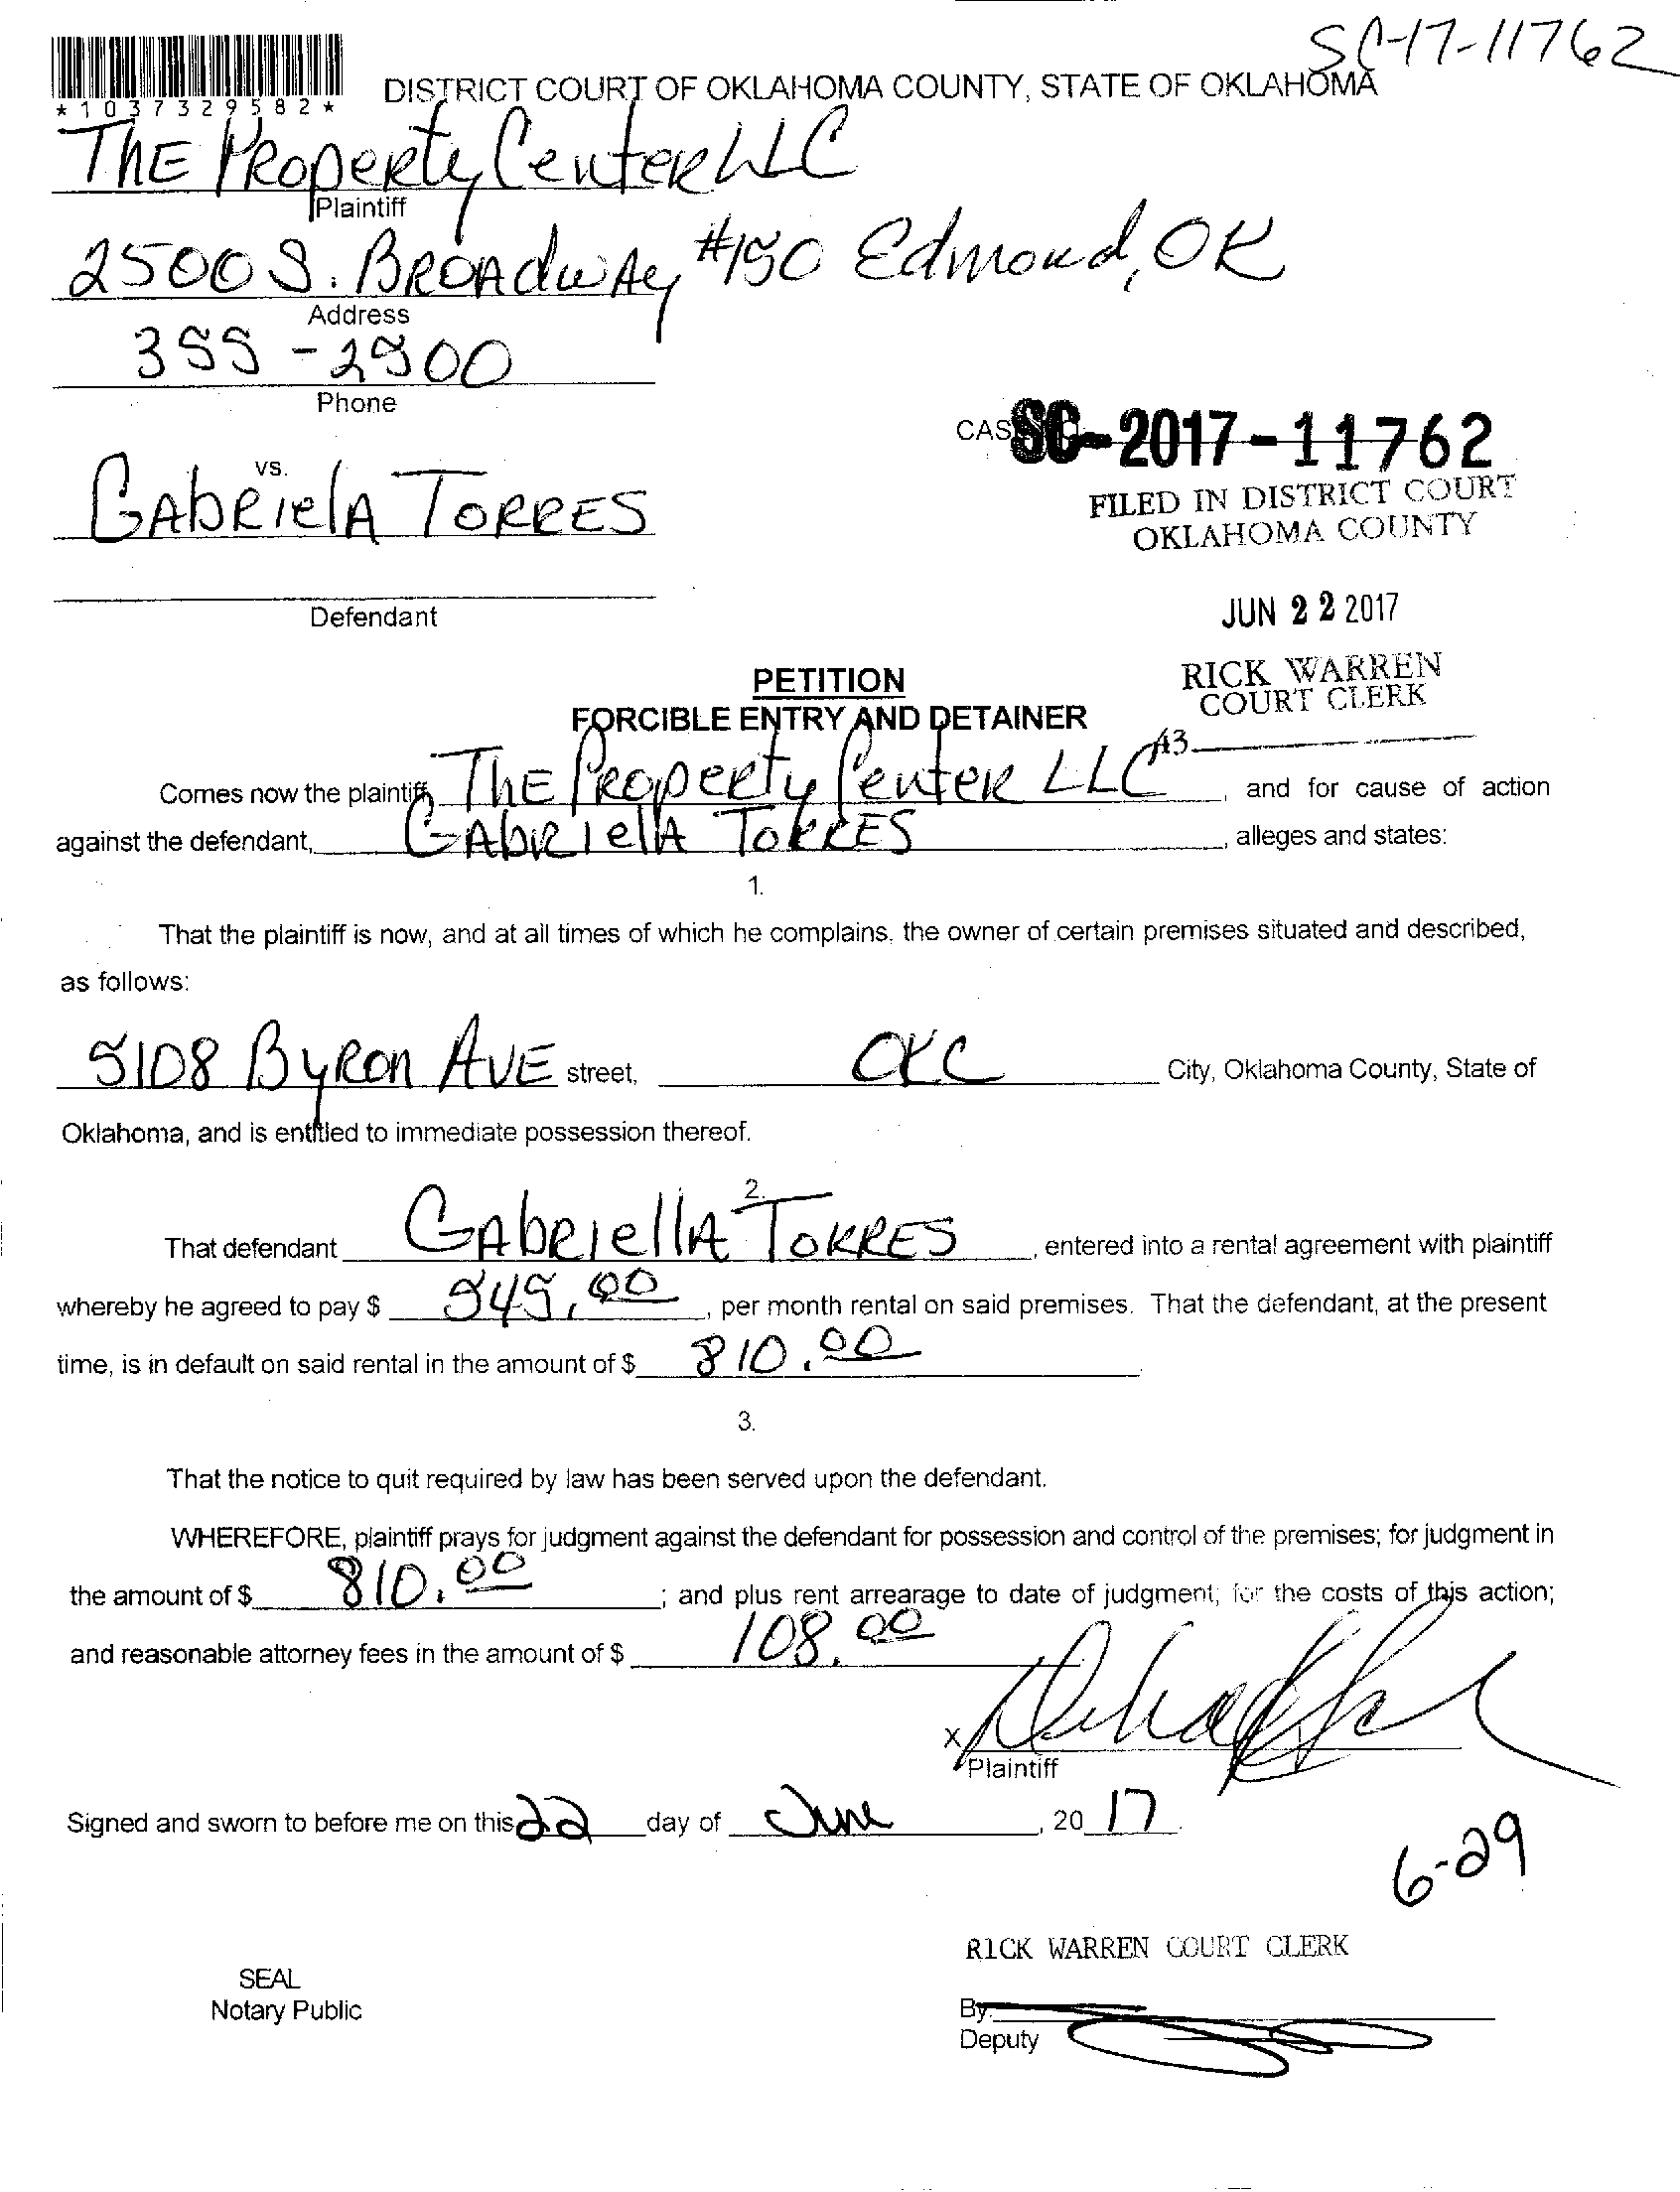 SC-17-11762
*1037329582*
DISTRICT COURT OF OKLAHOMA COUNTY, STATE OF OKLAHOMA
THE PROPERTY CENTER LLC
Plaintiff
2500 S. BROADWAY #150 Edmond, OK
Address
355-2500
Phone
CAS SC-2017-11762
vs.
GAbRIElA TORRES
FILED IN DISTRICT COURT
OKLAHOMA COUNTY
Defendant
JUN 22 2017
PETITION
RICK WARREN
COURT CLERK
FORCIBLE ENTRY AND DETAINER
43
Comes now the plaintiff, THE PROPERTY CENTER LLC, and for cause of action
against the defendant, GAbRIEllA TORRES, alleges and states:
1.
That the plaintiff is now, and at all times of which he complains, the owner of certain premises situated and described,
as follows:
5108 BYRON AVE street, OKC City, Oklahoma County, State of
Oklahoma, and is entitled to immediate possession thereof.
2.
That defendant GAbRIEllA TORRES, entered into a rental agreement with plaintiff
whereby he agreed to pay $ 545.00, per month rental on said premises. That the defendant, at the present
time, is in default on said rental in the amount of $ 810.00
3.
That the notice to quit required by law has been served upon the defendant.
WHEREFORE, plaintiff prays for judgment against the defendant for possession and control of the premises; for judgment in
the amount of $ 810.00; and plus rent arrearage to date of judgment; for the costs of this action;
and reasonable attorney fees in the amount of $ 108.00
x
Plaintiff
Signed and sworn to before me on this 22 day of June, 20 17.
6-29
RICK WARREN COURT CLERK
SEAL
Notary Public
By:
Deputy